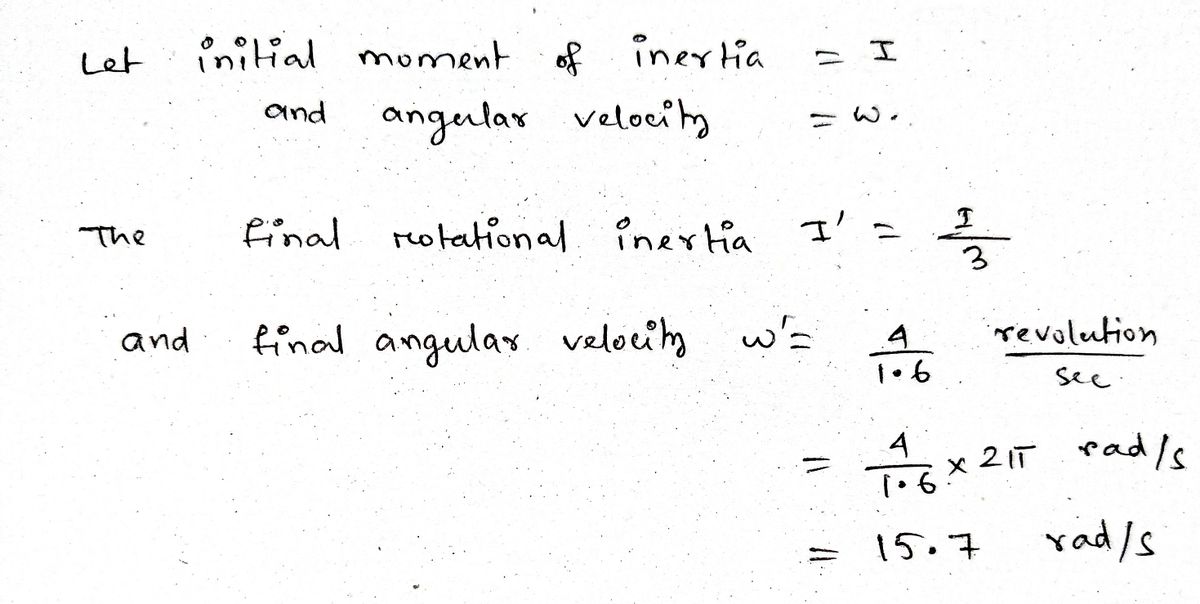 Let initial moment of inertia = I
and angular velocity = ω.
The final rotational inertia I' = I/3
and final angular velocity ω' = 4/1.6 revolution/sec
= 4/1.6 × 2π rad/s
= 15.7 rad/s